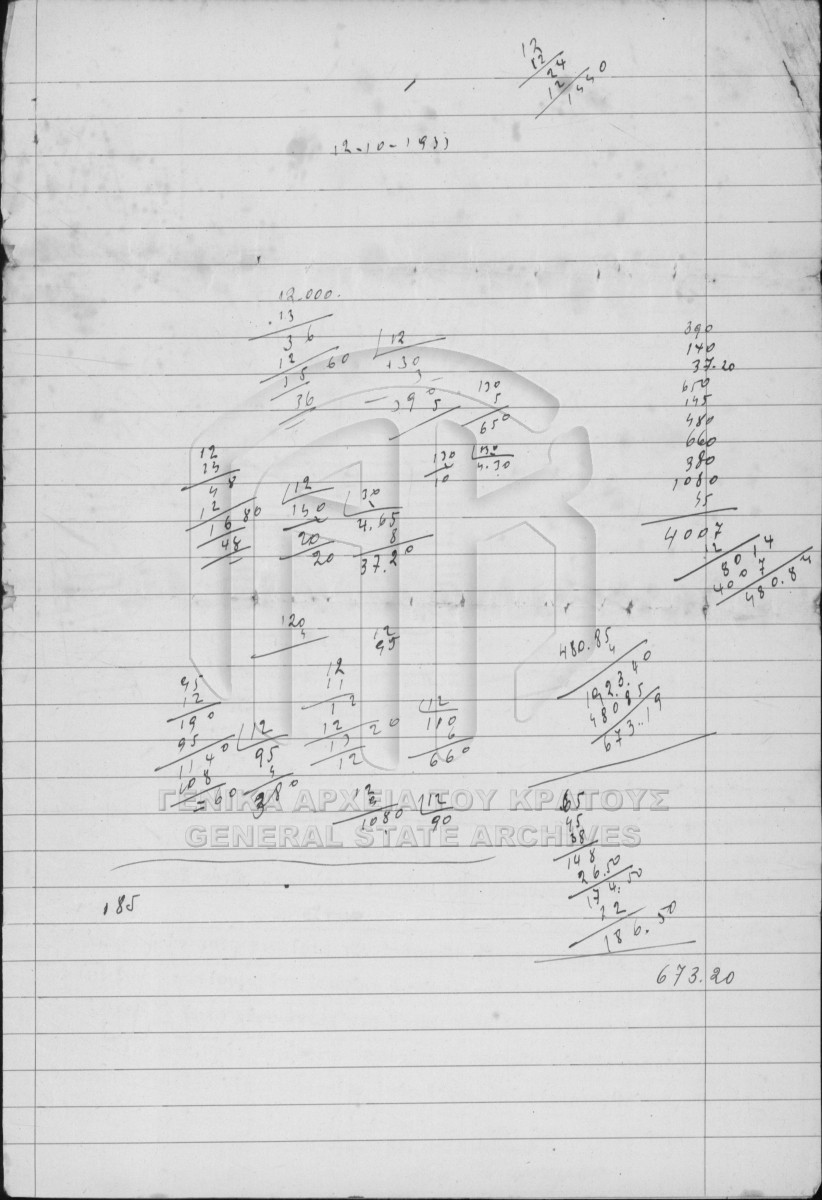 12
12
24
12
1440
12-10-1933
12.000.
13
36
12
1560
36
12
130
3
390
5
130
5
650
130
10
130
4.30
12
14
48
12
1680
48
12
140
20
20
30
4.65
8
37.20
390
140
37.20
650
145
480
660
380
1080
45
4007
12
8014
4007
480.84
120
4
12
95
480.85
4
1923.40
48085
673.19
95
12
190
95
1140
108
60
12
95
4
380
12
11
12
12
1320
12
12
110
6
660
12
1080
12
90
ΓΕΝΙΚΑ ΑΡΧΕΙΑ ΤΟΥ ΚΡΑΤΟΥΣ
GENERAL STATE ARCHIVES
185
65
45
38
148
26.50
174.50
12
186.50
673.20